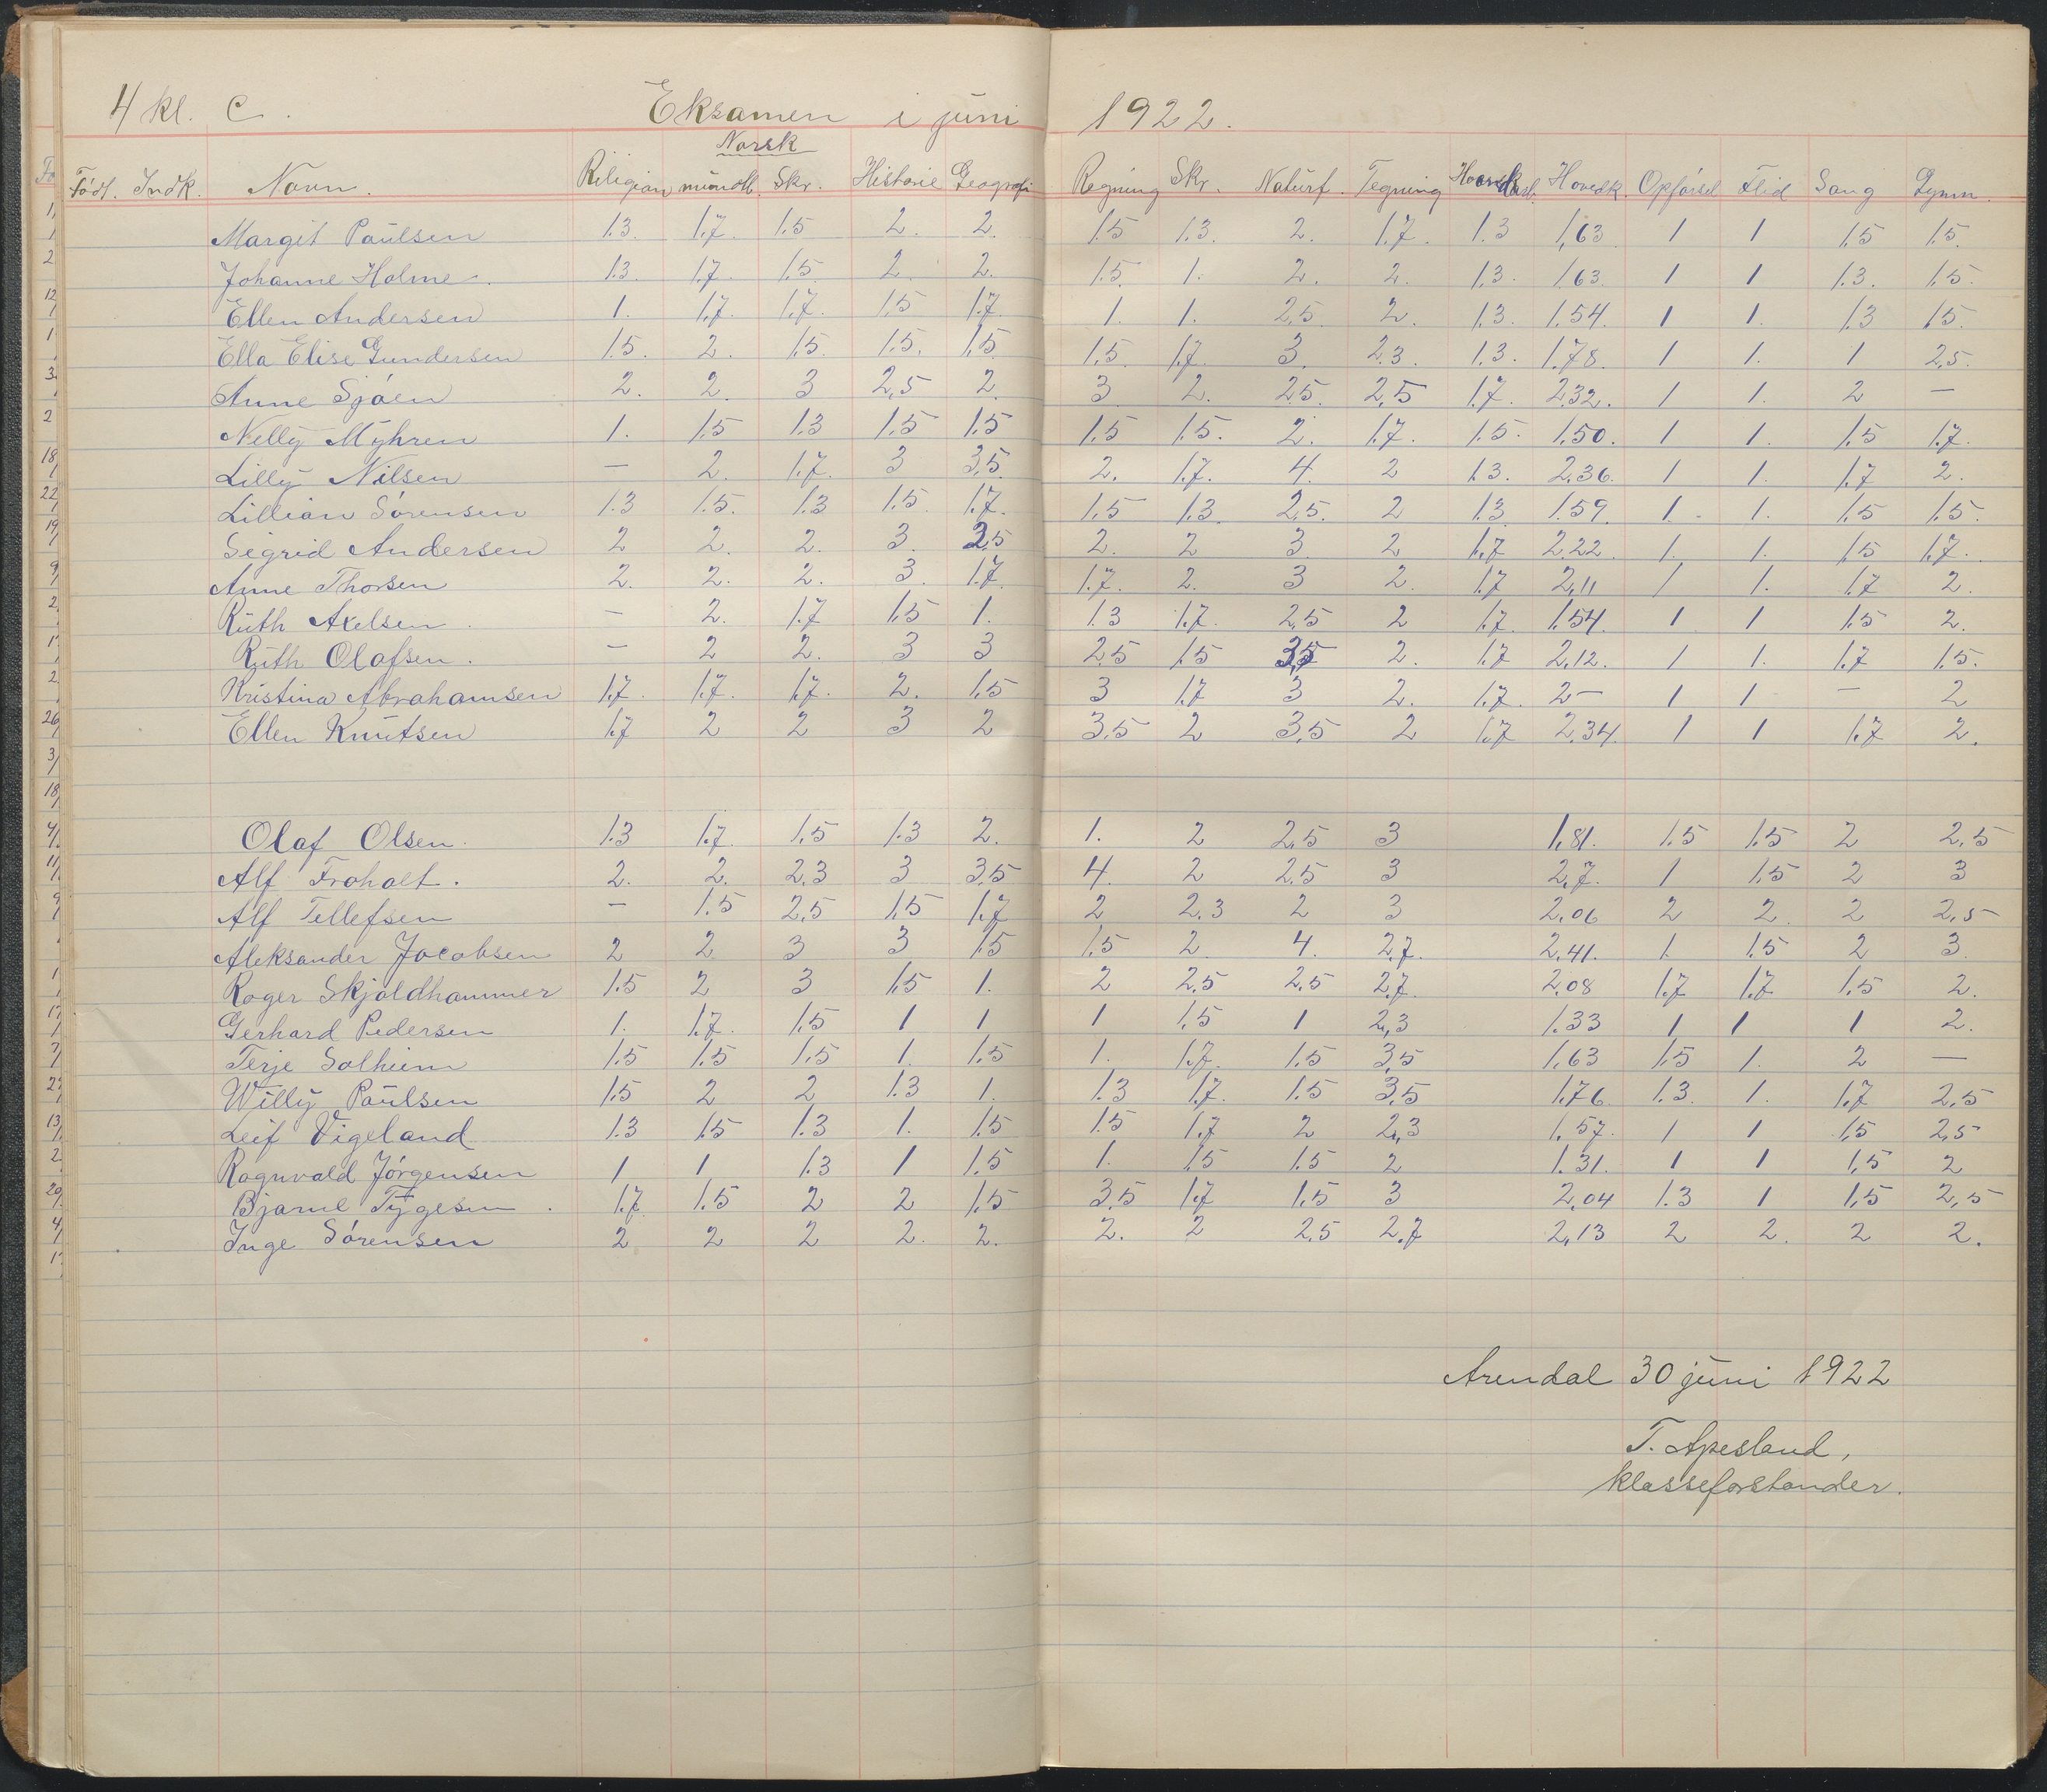 4 kl. C. Eksamen i juni 1922.
Norsk
Född. Indk. Navn. Riligion mundtl. Skr. Historie Geografi Regning Skr. Naturf. Tegning Hovedk. Opførsel Flid Sang Gymn.
Margit Paulsen 1.3. 1.7. 1.5 2. 2. 1.5 1.3. 2. 1.7. 1.3 1,63 1 1 1.5 1.5.
Johanne Holme. 1.3. 1.7 1.5 2. 2. 1.5. 1. 2. 2. 1.3. 1.63. 1 1 1.3. 1.5.
Ellen Andersen 1. 1.7. 1.7. 1.5 1.7. 1. 1. 2.5. 2. 1.3. 1.54. 1 1. 1.3 1.5.
Ella Elise Gundersen 1.5. 2. 1.5. 1.5. 1.5 1.5. 1.7. 3. 2.3. 1.3. 1.78. 1 1. 1 2.5.
Anne Sjøen 2. 2. 3 2,5 2. 3 2. 2.5. 2,5 1.7. 2.32. 1 1. 2 —
Nelly Myhren 1. 1.5 1.3 1.5 1.5 1.5 1.5. 2. 1.7. 1.5. 1.50. 1 1. 1.5 1.7.
Lilly Nilsen — 2. 1.7. 3 3.5 2. 1.7. 4. 2 1.3. 2.36. 1 1. 1.7 2.
Lillian Sørensen 1.3 1.5. 1.3 1.5. 1.7. 1.5 1.3. 2.5. 2 1.3 1.59. 1. 1. 1.5 1.5.
Sigrid Andersen 2 2. 2. 3. 2.5 2. 2 3 2 1.7 2.22. 1. 1. 1.5 1.7.
Anne Thorsen 2. 2. 2. 3. 1.7 1.7. 2. 3 2. 1.7 2,11 1 1. 1.7 2.
Ruth Axelsen. — 2. 1.7 1.5 1. 1.3 1.7. 2.5 2 1.7. 1.54. 1 1 1.5 2.
Ruth Olafsen. — 2 2. 3 3 2.5 1.5 3,5 2. 1.7 2.12. 1 1. 1.7 1.5.
Kristina Abrahamsen 1.7. 1.7. 1.7. 2. 1.5 3 1.7 3 2. 1.7. 2— 1 1 — 2
Ellen Knutsen 1.7 2 2 3 2 3.5 2 3.5 2 1.7 2.34. 1 1 1.7 2.
Olaf Olsen. 1.3 1.7 1.5 1.3 2. 1. 2 2.5 3 1,81. 1.5 1.5 2 2.5
Alf Froholt. 2. 2. 2.3 3 3.5 4. 2 2.5 3 2,7. 1 1.5 2 3
Alf Tellefsen — 1.5 2,5 1,5 1.7 2 2.3 2 3 2,06 2 2. 2 2,5
Aleksander Jacobsen 2 2 3 3 1.5 1.5 2. 4. 2.7. 2,41. 1. 1.5 2 3.
Roger Skjoldhammer 1.5 2 3 1,5 1. 2 2,5 2,5 2.7. 2,08 1.7 1.7 1,5 2.
Gerhard Pedersen 1. 1.7. 1.5 1 1 1 1.5 1 2,3 1.33 1 1 1 2.
Terje Solheim 1.5 1.5 1.5 1. 1.5 1. 1.7. 1.5 3,5 1,63 1.5 1. 2 —
Willy Paulsen 1.5 2 2 1.3 1. 1.3 1.7. 1.5 3,5 1.76. 1.3. 1. 1.7 2,5
Leif Vigeland 1.3 1.5 1.3 1. 1.5 1.5 1.7 2 2,3 1.57. 1 1 1,5 2,5
Ragnvald Jørgensen 1 1 1.3 1 1,5 1. 1.5 1.5 2 1.31. 1 1 1,5 2
Bjarne Tygesen. 1.7. 1.5 2 2 1,5 3,5 1.7 1,5 3 2,04 1.3 1 1,5 2,5
Inge Sørensen 2 2 2 2. 2. 2. 2 2.5 2.7 2,13 2 2. 2 2.
Arendal 30 juni 1922
T. Apesland,
klasseforstander.